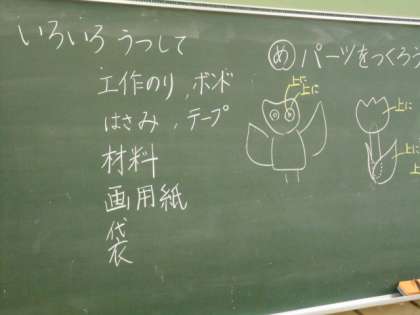 いろいろうつして
工作のり、ボンド
はさみ、テープ
材料
画用紙
袋
め パーツをつくろう
上に
上に
上に
上に
上